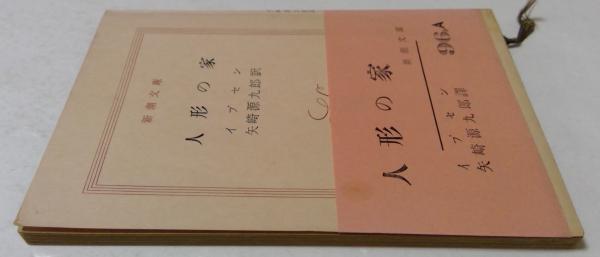 新潮文庫
人形の家
イプセン
矢崎源九郎訳
新潮文庫
人形の家
イプセン
矢崎源九郎譯
96A